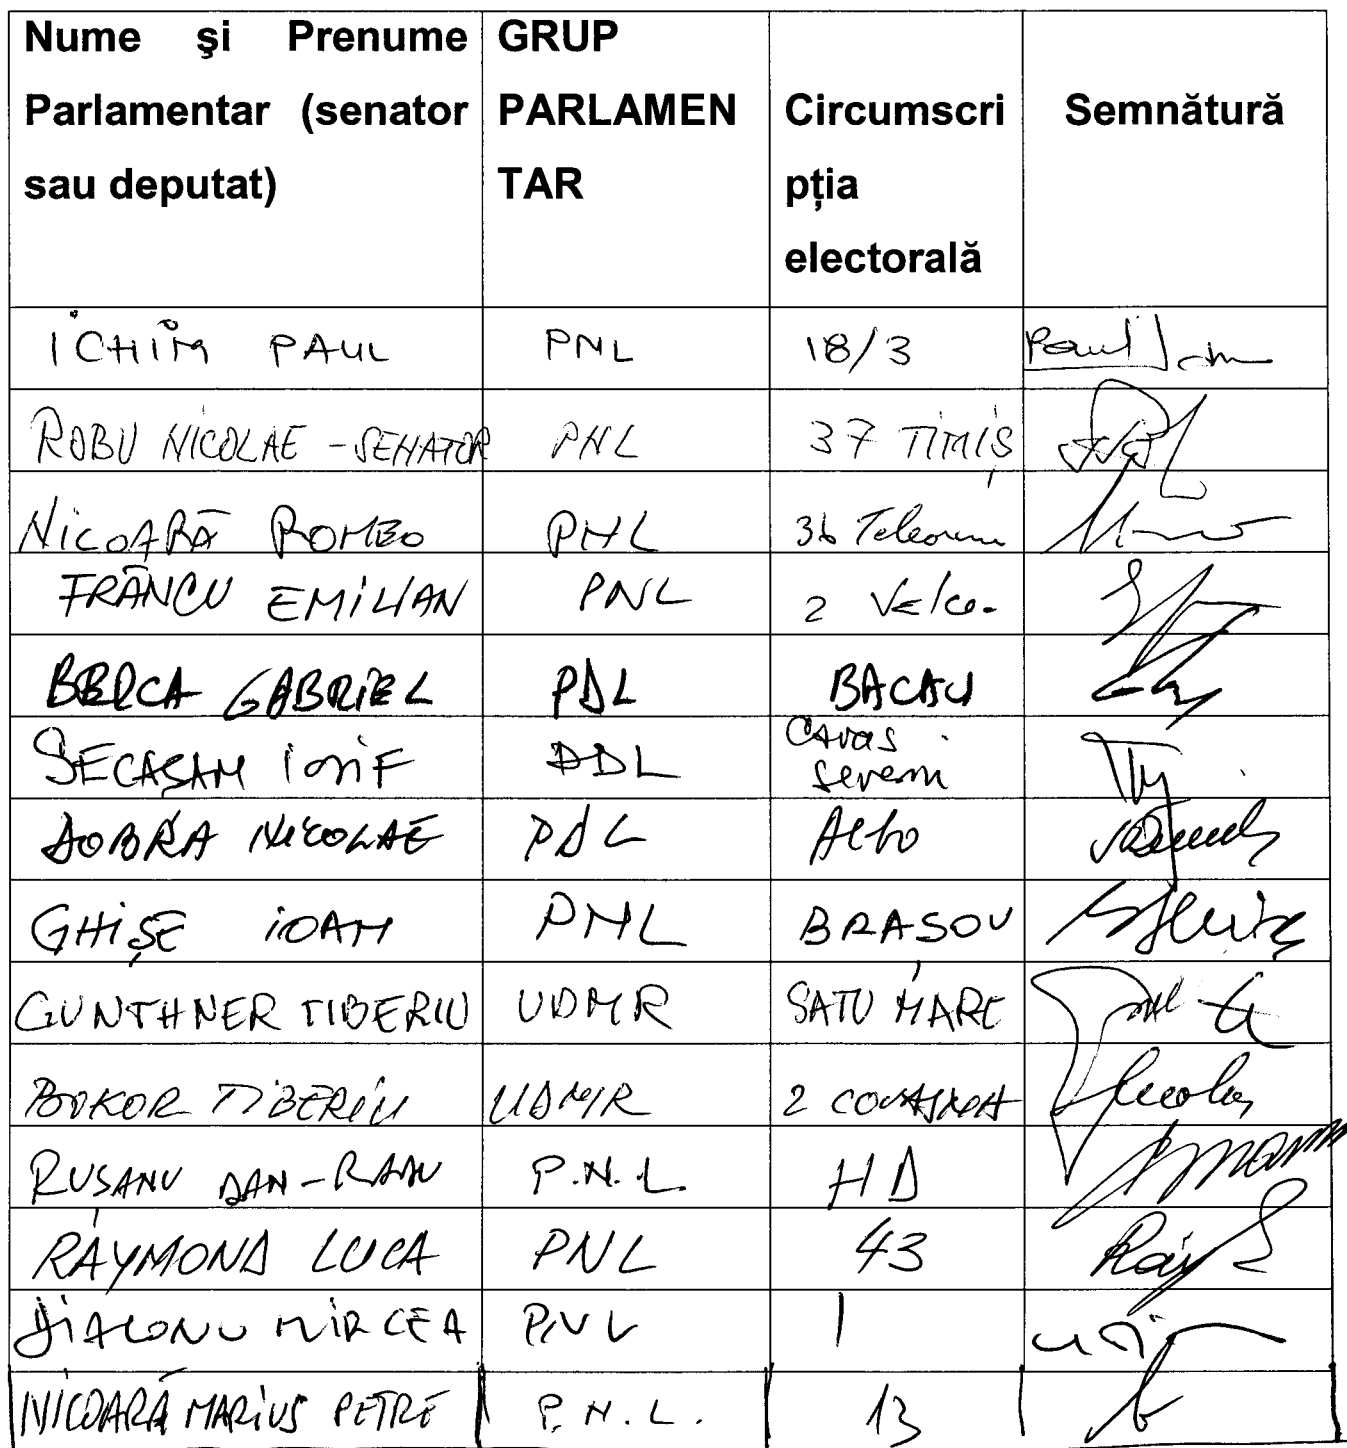 Nume şi Prenume Parlamentar (senator sau deputat) GRUP PARLAMEN TAR Circumscri pția electorală Semnătură
ICHIM PAUL PNL 18/3
ROBU NICOLAE - SENATOR PNL 37 TIMIȘ
NICOARĂ ROMEO PNL 36
FRÂNCU EMILIAN PNL 2
BERCA GABRIEL PDL BACAU
SECAȘAN IOSIF PDL Caras Severin
DOBRA NICOLAE PDL Alba
GHIȘE IOAN PNL BRAȘOV
GUNTHNER TIBERIU UDMR SATU MARE
BOKOR TIBERIU UDMR 2 COVASNA
RUSANU DAN-RADU P.N.L. HD
RAYMOND LUCA PNL 43
DIACONU MIRCEA PNL 1
NICOARĂ MARIUS PETRE P.N.L. 13